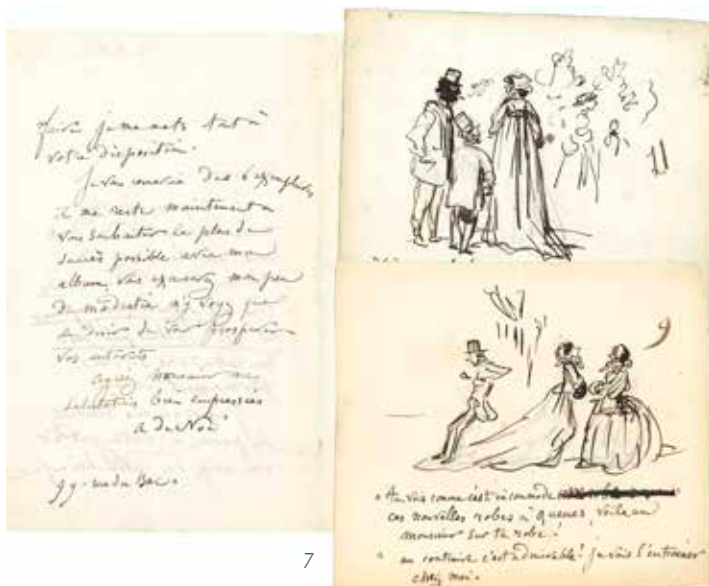 je me mets tout à
votre disposition.
Je vous remercie des 6 exemplaires
il me reste maintenant à
vous souhaiter le plus de
succès possible avec mon
album, vous excuserez mon peu
de modestie n'y voyez que
le désir de voir prospérer
vos intérêts
agréez monsieur mes
salutations bien empressées
A de Noé
99. rue du Bac.
9
" tu vois comme c'est incommode
ces nouvelles robes à queues, voila un
monsieur sur ta robe!
" au contraire c'est admirable! je vais l'entrainer
chez moi.
7